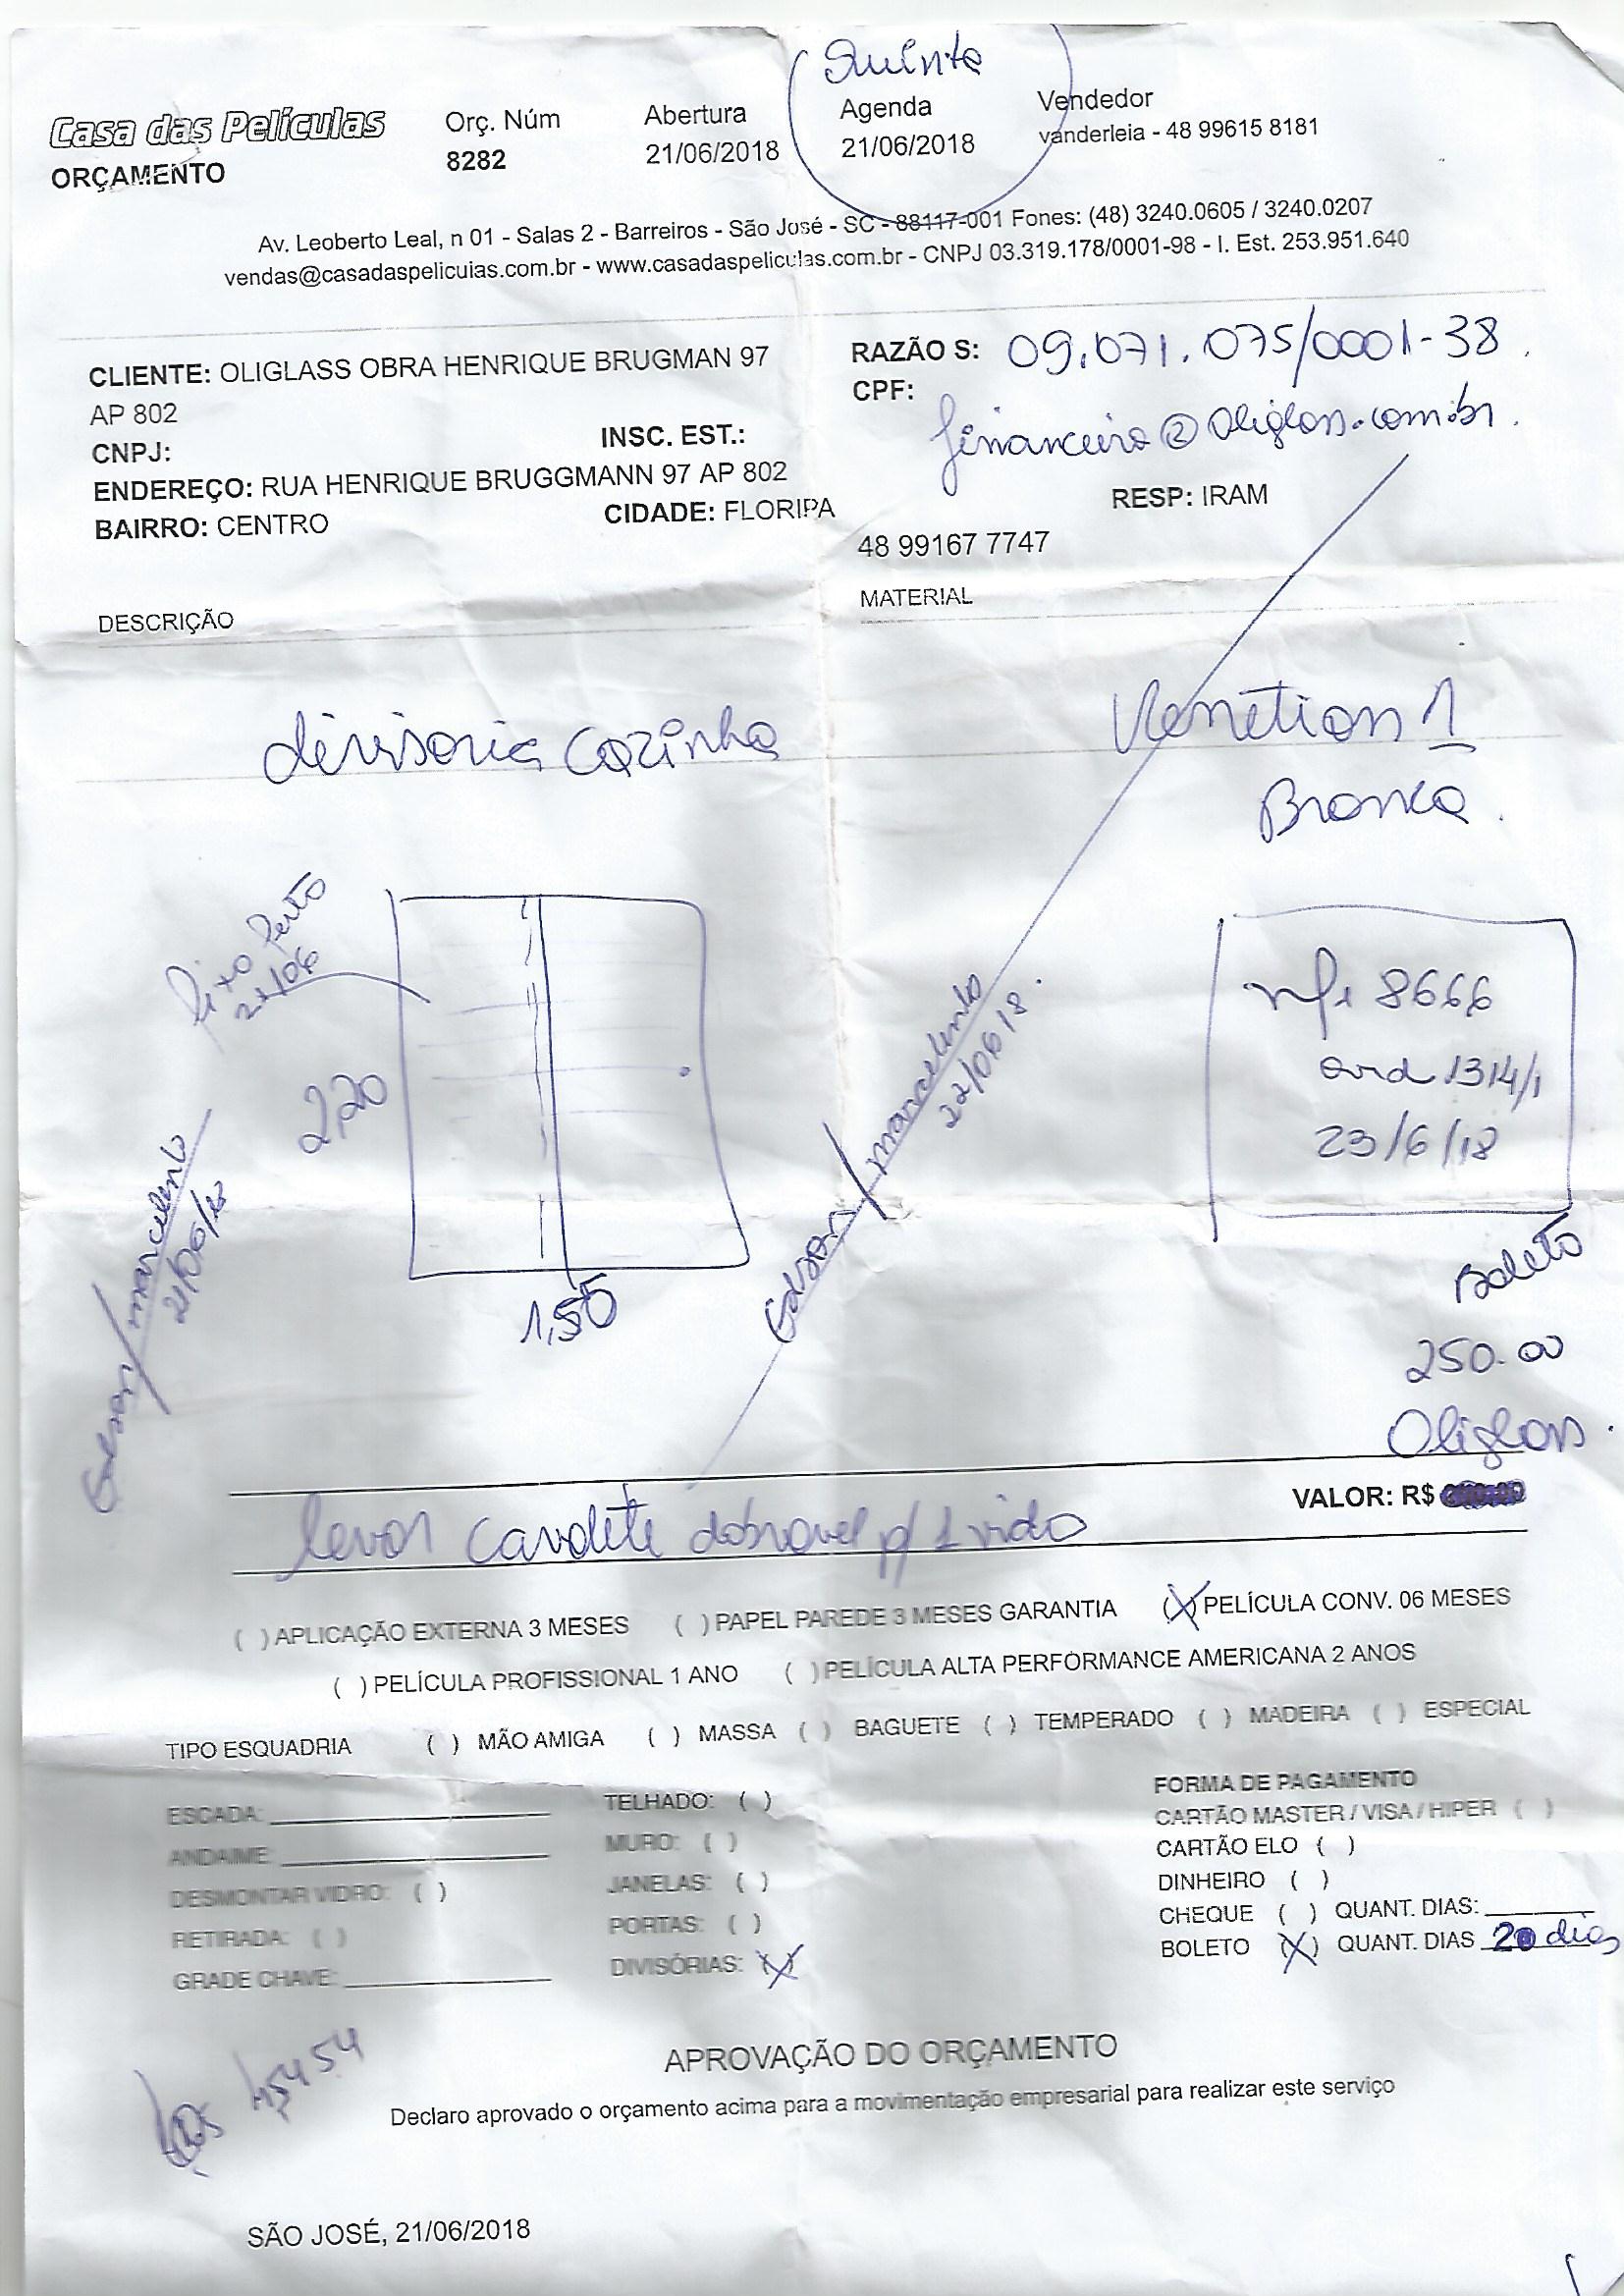 Quinta
Casa das Películas
ORÇAMENTO
Orç. Núm
8282
Abertura
21/06/2018
Agenda
21/06/2018
Vendedor
vanderleia - 48 99615 8181
Av. Leoberto Leal, n 01 - Salas 2 - Barreiros - São José - SC - 88117-001 Fones: (48) 3240.0605 / 3240.0207
vendas@casadaspeliculas.com.br - www.casadaspeliculas.com.br - CNPJ 03.319.178/0001-98 - I. Est. 253.951.640
CLIENTE: OLIGLASS OBRA HENRIQUE BRUGMAN 97
AP 802
CNPJ:
INSC. EST.:
ENDEREÇO: RUA HENRIQUE BRUGGMANN 97 AP 802
BAIRRO: CENTRO
CIDADE: FLORIPA
RAZÃO S: 09.071.075/0001-38
CPF:
financeiro@oliglass.com.br.
RESP: IRAM
48 99167 7747
DESCRIÇÃO
MATERIAL
divisoria cozinha
Venetian 1
Branca.
21/06
2,20
1,50
Edson/marcelinho
21/06/18
Edson/marcelinho
22/06/18.
nfe 8666
ord 1314/1
23/6/18
Boleto
250.00
Oliglass.
VALOR: R$
levar cavalete dobravel p/ 1 vidro
( ) APLICAÇÃO EXTERNA 3 MESES ( ) PAPEL PAREDE 3 MESES GARANTIA (X) PELÍCULA CONV. 06 MESES
( ) PELÍCULA PROFISSIONAL 1 ANO ( ) PELÍCULA ALTA PERFORMANCE AMERICANA 2 ANOS
TIPO ESQUADRIA ( ) MÃO AMIGA ( ) MASSA ( ) BAGUETE ( ) TEMPERADO ( ) MADEIRA ( ) ESPECIAL
ESCADA:
ANDAIME:
DESMONTAR VIDRO: ( )
RETIRADA: ( )
GRADE CHAVE:
TELHADO: ( )
MURO: ( )
JANELAS: ( )
PORTAS: ( )
DIVISÓRIAS: (X)
FORMA DE PAGAMENTO
CARTÃO MASTER / VISA / HIPER ( )
CARTÃO ELO ( )
DINHEIRO ( )
CHEQUE ( ) QUANT. DIAS:
BOLETO (X) QUANT. DIAS 20 dias
APROVAÇÃO DO ORÇAMENTO
Declaro aprovado o orçamento acima para a movimentação empresarial para realizar este serviço
SÃO JOSÉ, 21/06/2018